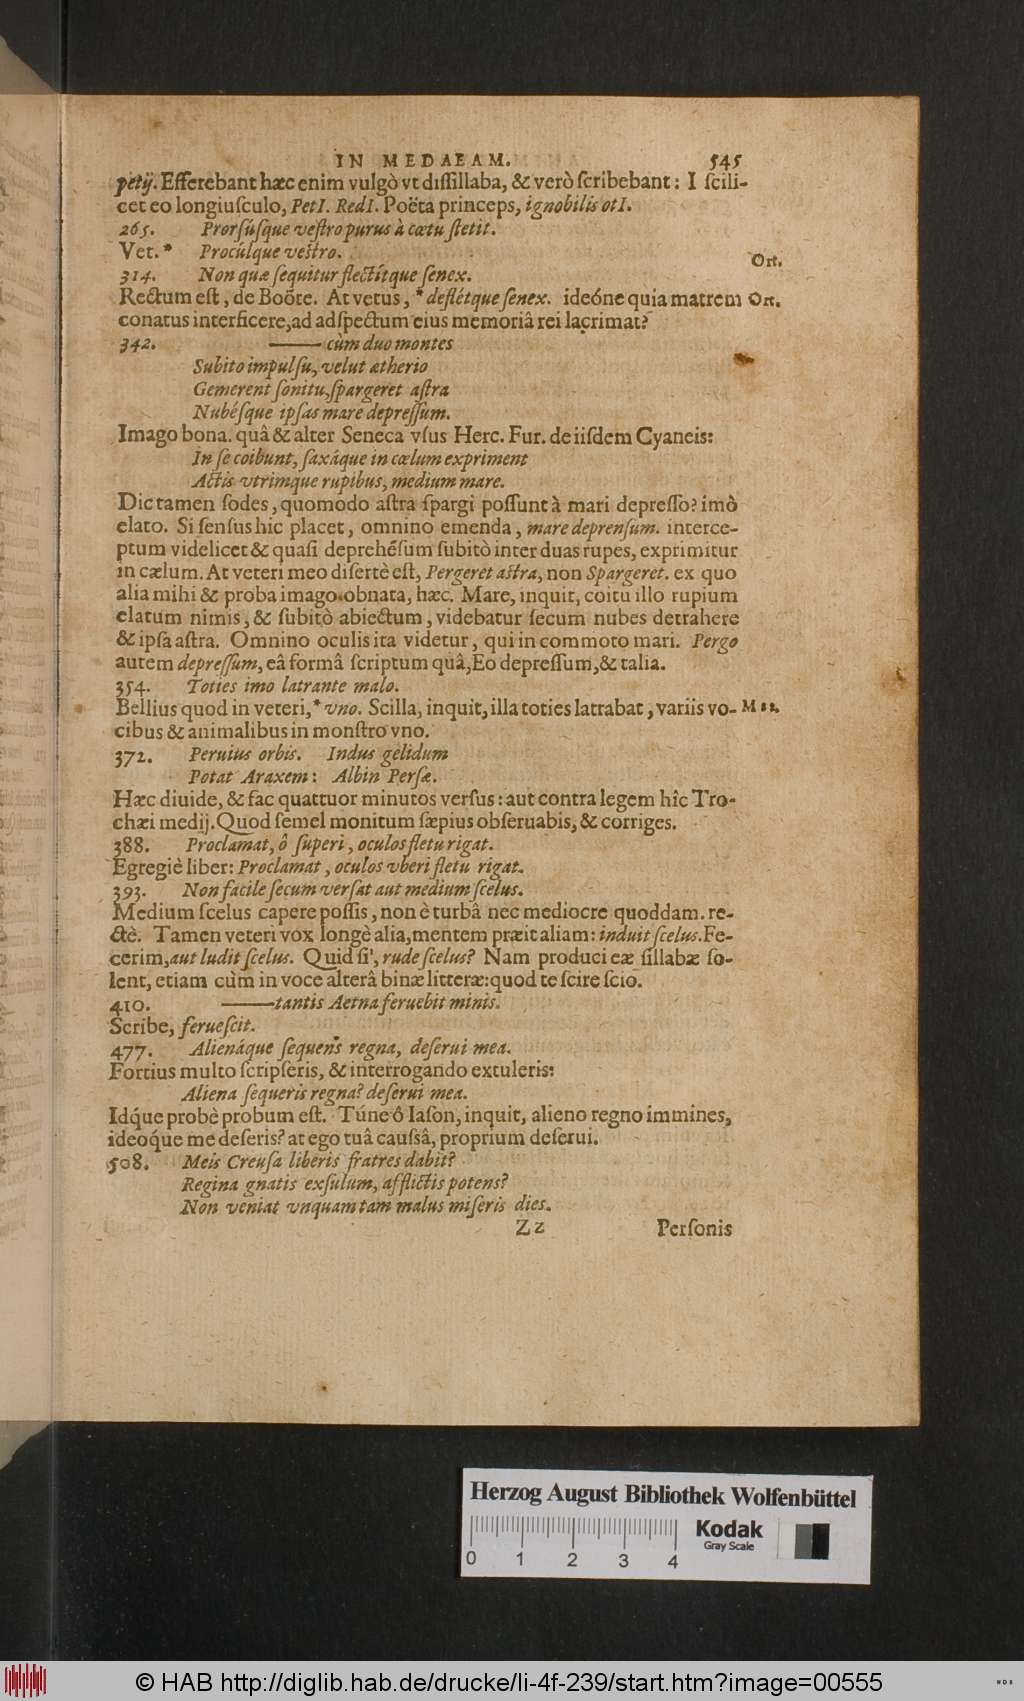 IN MEDAEAM. 545
petij. Efferebant hæc enim vulgò vt dissillaba, & verò scribebant: I scili-
cet eo longiusculo, PetI. RedI. Poëta princeps, ignobilis otI.
265. Prorsúsque vestro purus à cœtu stetit.
Vet. * Procúlque vestro. Ort.
314. Non quæ sequitur flectítque senex.
Rectum est, de Boöte. At vetus, * deflétque senex. ideóne quia matrem Ort.
conatus interficere, ad adspectum eius memoriâ rei lacrimat?
342. ——— cùm duo montes
Subito impulsu, velut ætherio
Gemerent sonitu, spargeret astra
Nubésque ipsas mare depressum.
Imago bona. quâ & alter Seneca vsus Herc. Fur. de iisdem Cyaneis:
In se coibunt, saxáque in cœlum expriment
Actis vtrimque rupibus, medium mare.
Dic tamen sodes, quomodo astra spargi possunt à mari depresso? imò
elato. Si sensus hic placet, omnino emenda, mare deprensum. interce-
ptum videlicet & quasi deprehésum subitò inter duas rupes, exprimitur
in cælum. At veteri meo disertè est, Pergeret astra, non Spargeret. ex quo
alia mihi & proba imago obnata, hæc. Mare, inquit, coitu illo rupium
elatum nimis, & subitò abiectum, videbatur secum nubes detrahere
& ipsa astra. Omnino oculis ita videtur, qui in commoto mari. Pergo
autem depressum, eâ formâ scriptum quâ, Eo depressum, & talia.
354. Toties imo latrante malo.
Bellius quod in veteri, * vno. Scilla, inquit, illa toties latrabat, variis vo-
cibus & animalibus in monstro vno.
372. Peruius orbis. Indus gelidum
Potat Araxem: Albin Persæ.
Hæc diuide, & fac quattuor minutos versus: aut contra legem hîc Tro-
chæi medij. Quod semel monitum sæpius obseruabis, & corriges.
388. Proclamat, ô superi, oculos fletu rigat.
Egregiè liber: Proclamat, oculos vberi fletu rigat.
393. Non facile secum versat aut medium scelus.
Medium scelus capere possis, non è turbâ nec mediocre quoddam. re-
ctè. Tamen veteri vox longè alia, mentem præit aliam: induit scelus. Fe-
cerim, aut ludit scelus. Quid si', rude scelus? Nam produci eæ sillabæ so-
lent, etiam cùm in voce alterâ binæ litteræ: quod te scire scio.
410. ——— tantis Aetna feruebit minis.
Scribe, feruescit.
477. Alienáque sequens regna, deserui mea.
Fortius multo scripseris, & interrogando extuleris:
Aliena sequeris regna? deserui mea.
Idq́ue probè probum est. Túne ô Iason, inquit, alieno regno immines,
ideoq́ue me deseris? at ego tuâ caussâ, proprium deserui.
508. Meis Creusa liberis fratres dabit?
Regina gnatis exsulum, afflictis potens?
Non veniat vnquam tam malus miseris dies.
Zz Personis
Herzog August Bibliothek Wolfenbüttel
Kodak
Gray Scale
0 1 2 3 4
© HAB http://diglib.hab.de/drucke/li-4f-239/start.htm?image=00555